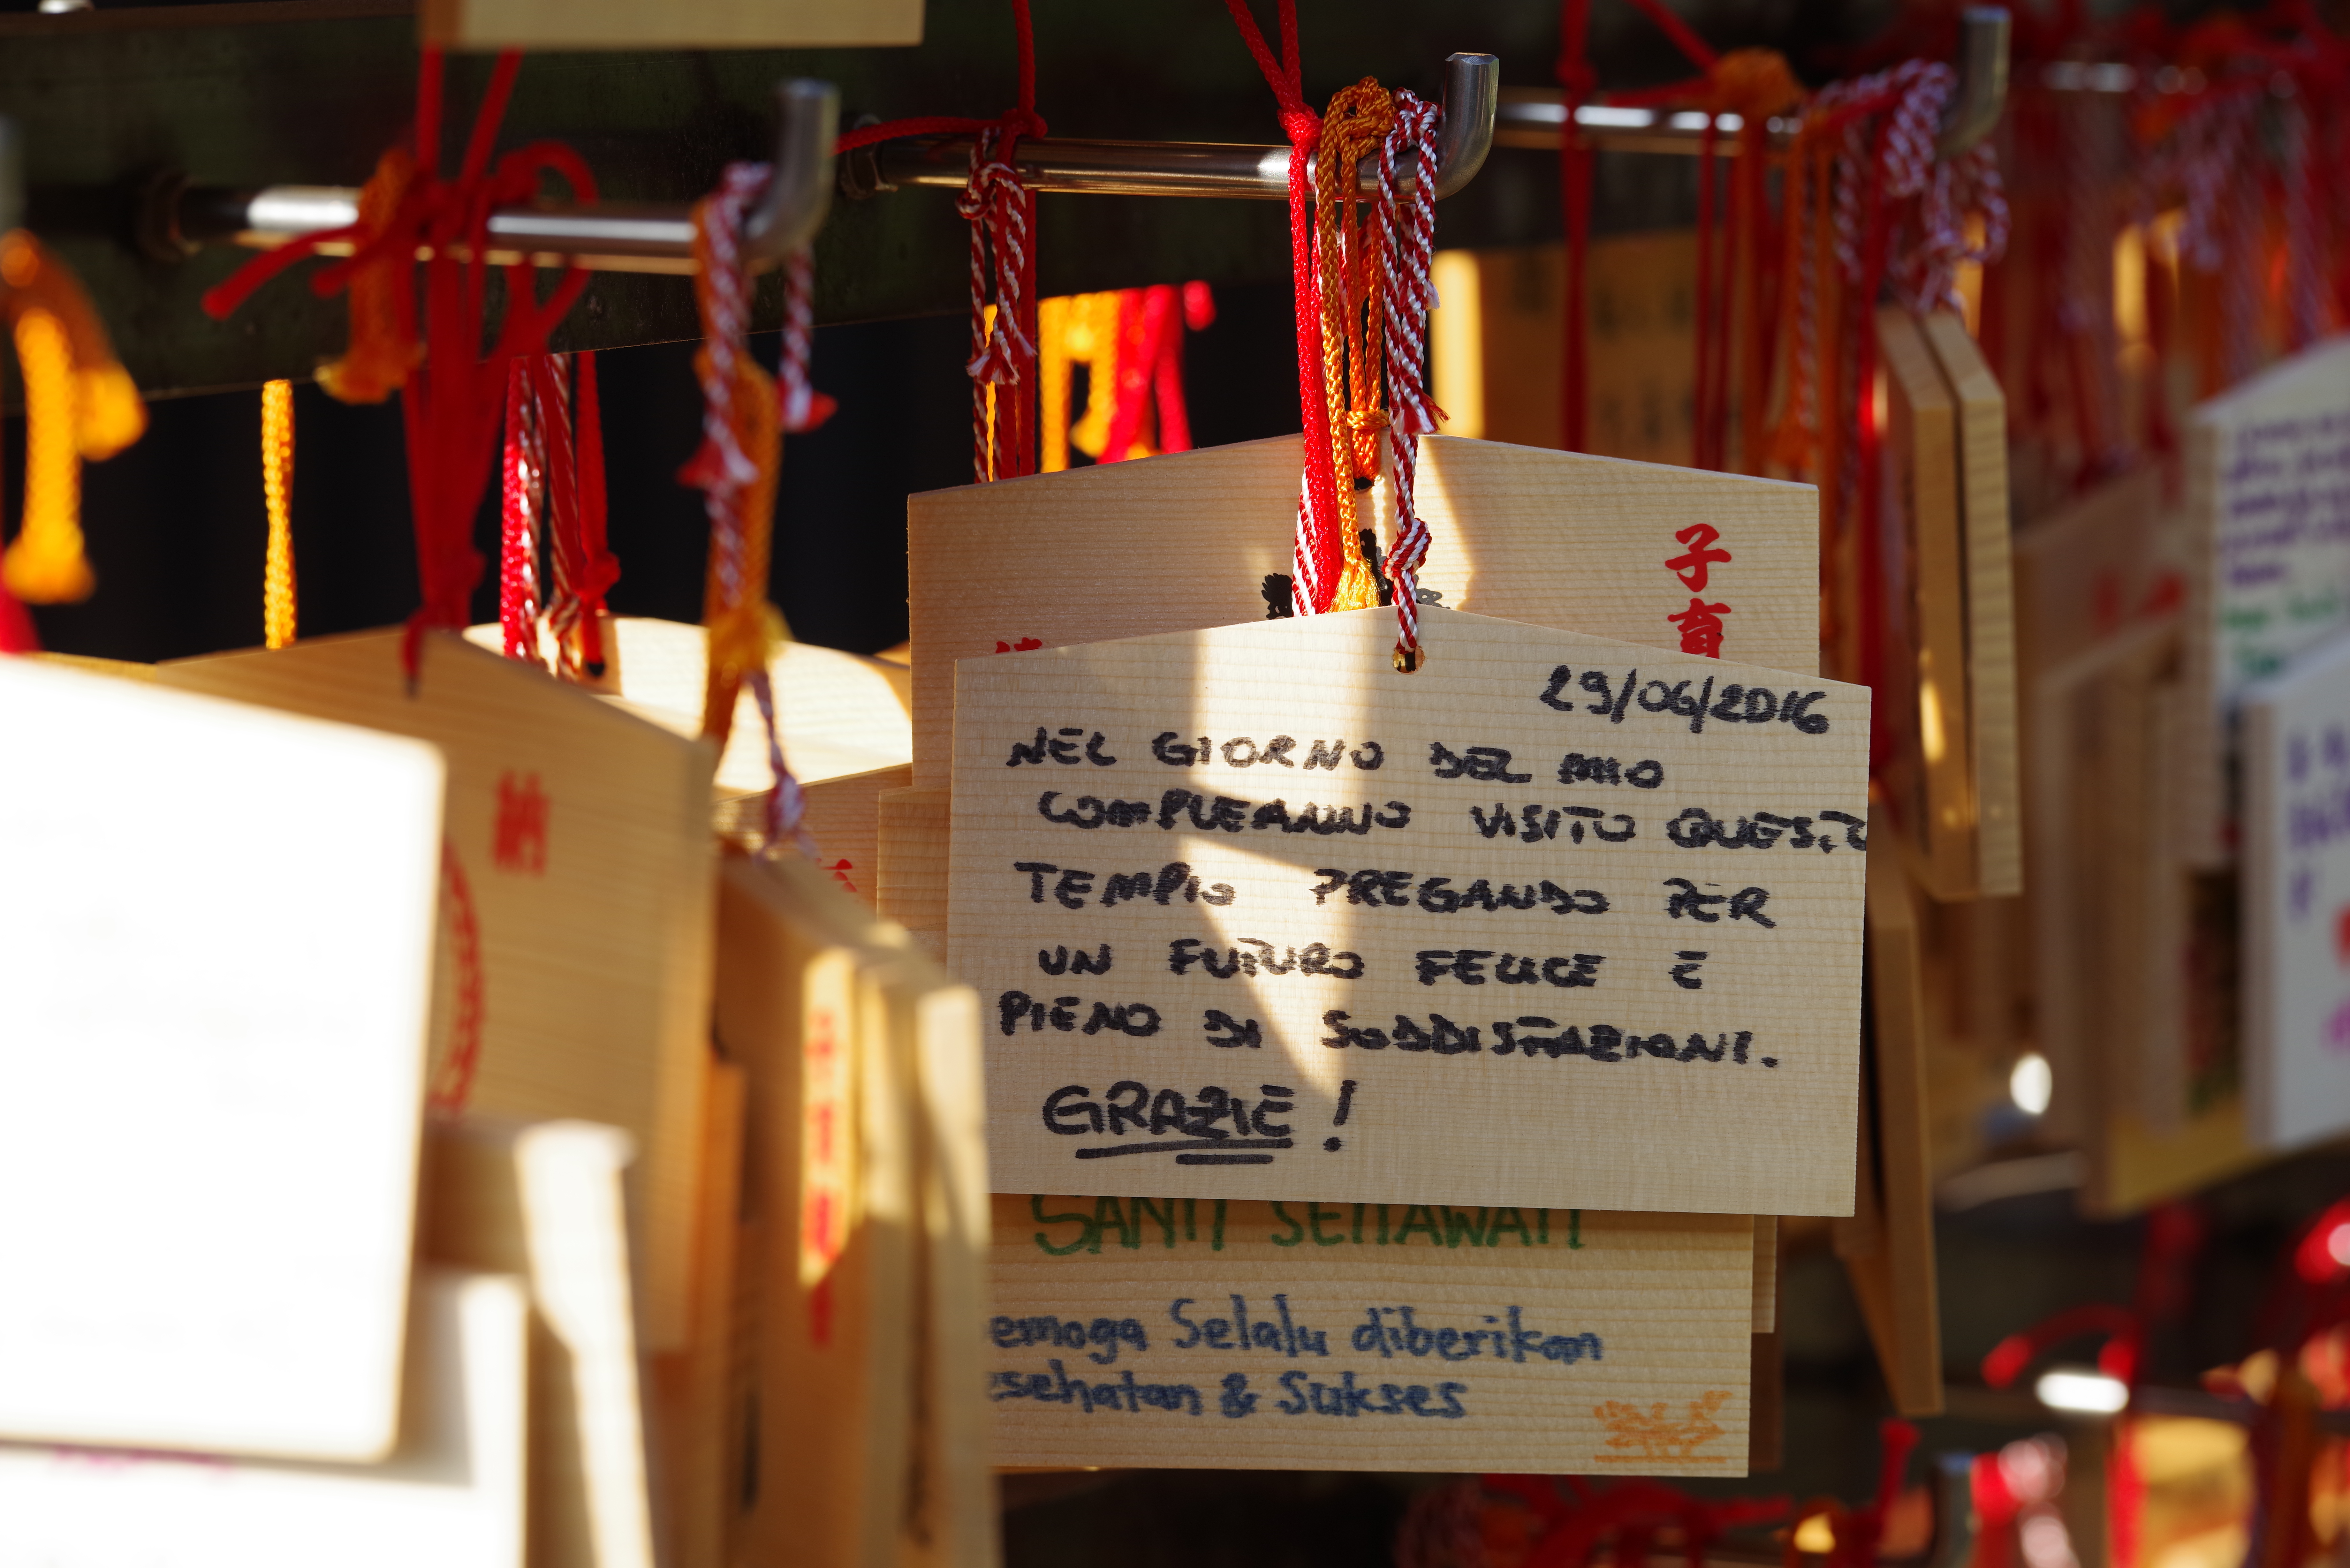 子育
29/06/2016
NEL GIORNO DEL MIO
COMPLEANNO VISITO QUESTO
TEMPIO PREGANDO PER
UN FUTURO FELICE E
PIENO DI SODDISFAZIONI.
GRAZIE!
SANTI SETIAWATI
emoga Selalu diberikan
esehatan & Sukses
納